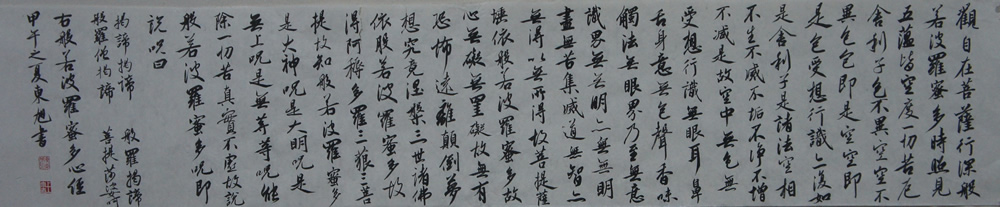 觀自在菩薩行深般
若波羅蜜多時照見
五蘊皆空度一切苦厄
舍利子色不異空空不
異色色即是空空即
是色受想行識亦復如
是舍利子是諸法空相
不生不滅不垢不淨不增
不減是故空中無色無
受想行識無眼耳鼻
舌身意無色聲香味
觸法無眼界乃至無意
識界無無明亦無無明
盡無苦集滅道無智亦
無得以無所得故菩提薩
埵依般若波羅蜜多故
心無礙無罣礙故無有
恐怖遠離顛倒夢
想究竟涅槃三世諸佛
依般若波羅蜜多故
得阿耨多羅三藐三菩
提故知般若波羅蜜多
是大神咒是大明咒是
無上咒是無等等咒能
除一切苦真實不虛故說
般若波羅蜜多咒即
說咒曰
揭諦揭諦 般羅揭諦
般羅僧揭諦 菩提薩婆訶
右般若波羅蜜多心經
甲午之夏東旭書